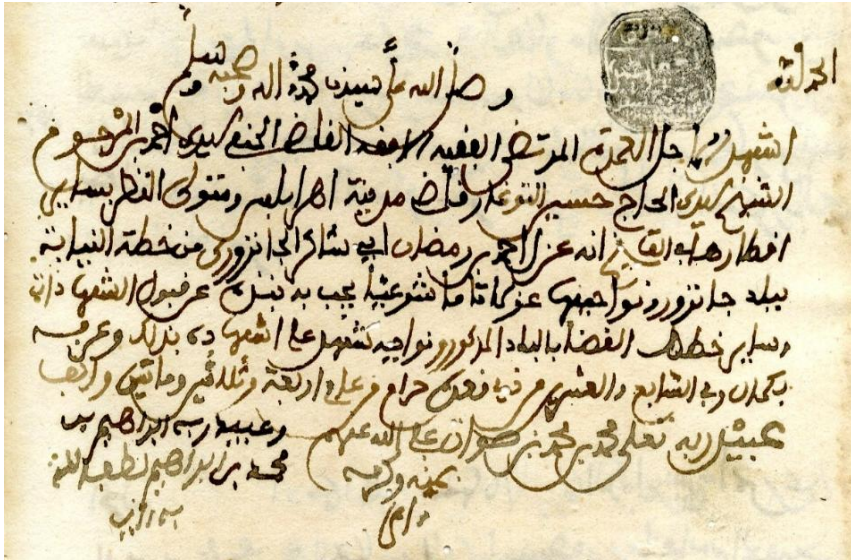 الحمد لله
وصلى الله على سيدنا محمد وآله وصحبه وسلم
اشهد اجل العمدة المرتضى الفقيه الافقه القاضي الحنفي سيدي احمد بن المرحوم
الشيخ سيدي الحاج حسين التوغار قاضي مدينة اطرابلس ومتولى النظر بساير
اقطارها القايم انه عزل احمد بن رمضان ابي شاكر الجانزوري من خطة النيابة
ببلد جانزور ونواحيها عزلا تاما شرعيا يجب به عن قبول الشهادات
وساير خطط القضا بالبلد المذكور ونواحيه شهد على اشهاده بذلك وعرفه
بكمال وفي السابع والعشرين من ذي قعدة حرام من عام اربعة وثلاثين وماتين والف
عبيد ربه تعلى محمد بن محمد بن رضوان الله عليهم
وعبيد ربه ابراهيم بن
بمنه وكرمه
محمد بن ابراهيم لطف الله
امين
به امين